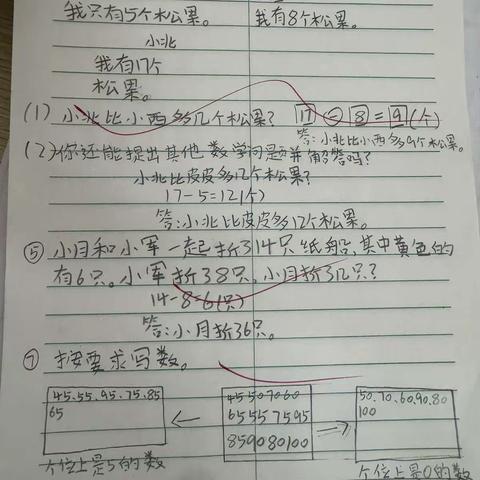 我只有5个松果。 我有8个松果。
小北
我有17个
松果。
(1) 小北比小西多几个松果? 17-8=9(个)
答:小北比小西多9个松果。
(2)你还能提出其他数学问题并解答吗?
小北比皮皮多几个松果?
17-5=12(个)
答:小北比皮皮多12个松果。
⑤ 小月和小军一起折了14只纸船,其中黄色的
有6只。小军折了8只,小月折了几只?
14-8=6(只)
答:小月折了6只。
⑦ 按要求写数。
45、55、95、75、85 45 50 70 60 50、70、60、90、80
65 65 55 75 95 100
85 90 80 100
个位上是5的数 个位上是0的数